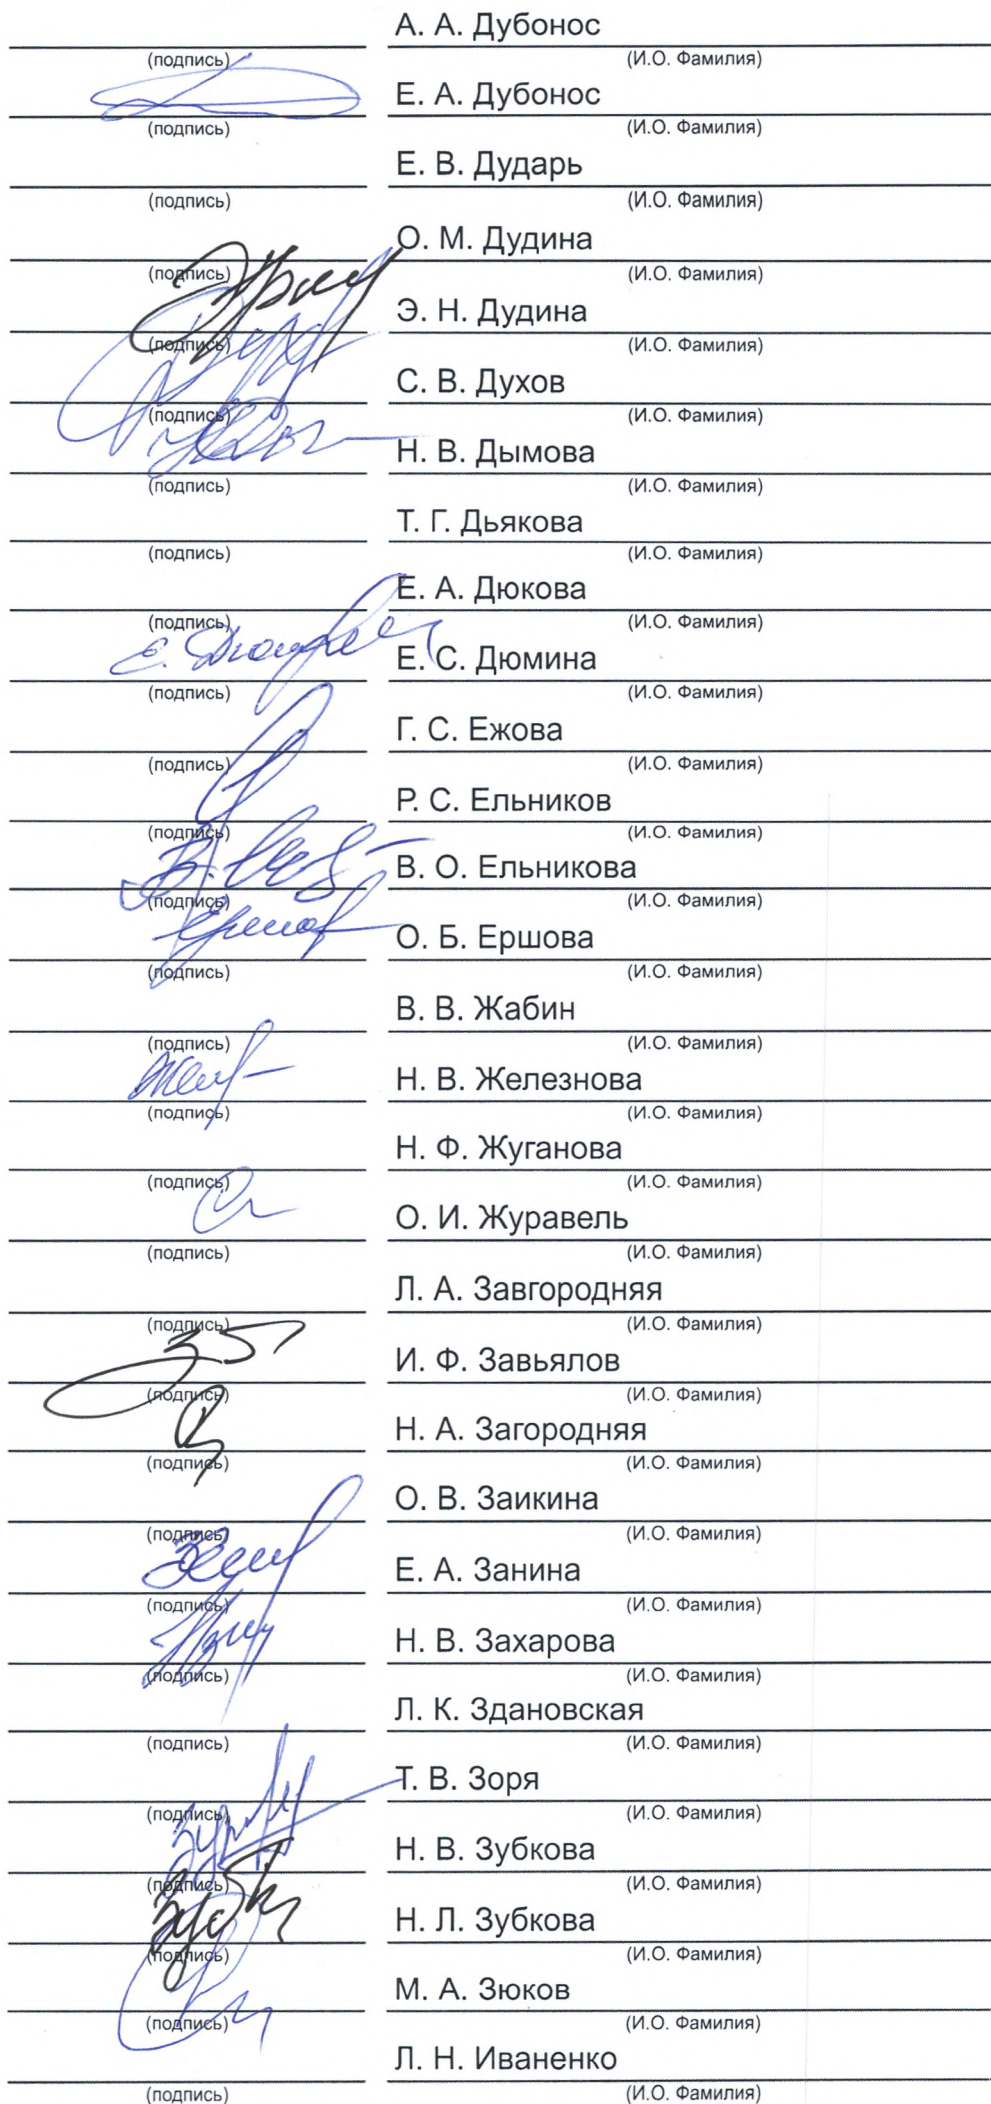 А. А. Дубонос
(подпись) (И.О. Фамилия)
Е. А. Дубонос
(подпись) (И.О. Фамилия)
Е. В. Дударь
(подпись) (И.О. Фамилия)
О. М. Дудина
(подпись) (И.О. Фамилия)
Э. Н. Дудина
(подпись) (И.О. Фамилия)
С. В. Духов
(подпись) (И.О. Фамилия)
Н. В. Дымова
(подпись) (И.О. Фамилия)
Т. Г. Дьякова
(подпись) (И.О. Фамилия)
Е. А. Дюкова
(подпись) (И.О. Фамилия)
Е. С. Дюмина
(подпись) (И.О. Фамилия)
Г. С. Ежова
(подпись) (И.О. Фамилия)
Р. С. Ельников
(подпись) (И.О. Фамилия)
В. О. Ельникова
(подпись) (И.О. Фамилия)
О. Б. Ершова
(подпись) (И.О. Фамилия)
В. В. Жабин
(подпись) (И.О. Фамилия)
Н. В. Железнова
(подпись) (И.О. Фамилия)
Н. Ф. Жуганова
(подпись) (И.О. Фамилия)
О. И. Журавель
(подпись) (И.О. Фамилия)
Л. А. Завгородняя
(подпись) (И.О. Фамилия)
И. Ф. Завьялов
(подпись) (И.О. Фамилия)
Н. А. Загородняя
(подпись) (И.О. Фамилия)
О. В. Заикина
(подпись) (И.О. Фамилия)
Е. А. Занина
(подпись) (И.О. Фамилия)
Н. В. Захарова
(подпись) (И.О. Фамилия)
Л. К. Здановская
(подпись) (И.О. Фамилия)
Т. В. Зоря
(подпись) (И.О. Фамилия)
Н. В. Зубкова
(подпись) (И.О. Фамилия)
Н. Л. Зубкова
(подпись) (И.О. Фамилия)
М. А. Зюков
(подпись) (И.О. Фамилия)
Л. Н. Иваненко
(подпись) (И.О. Фамилия)